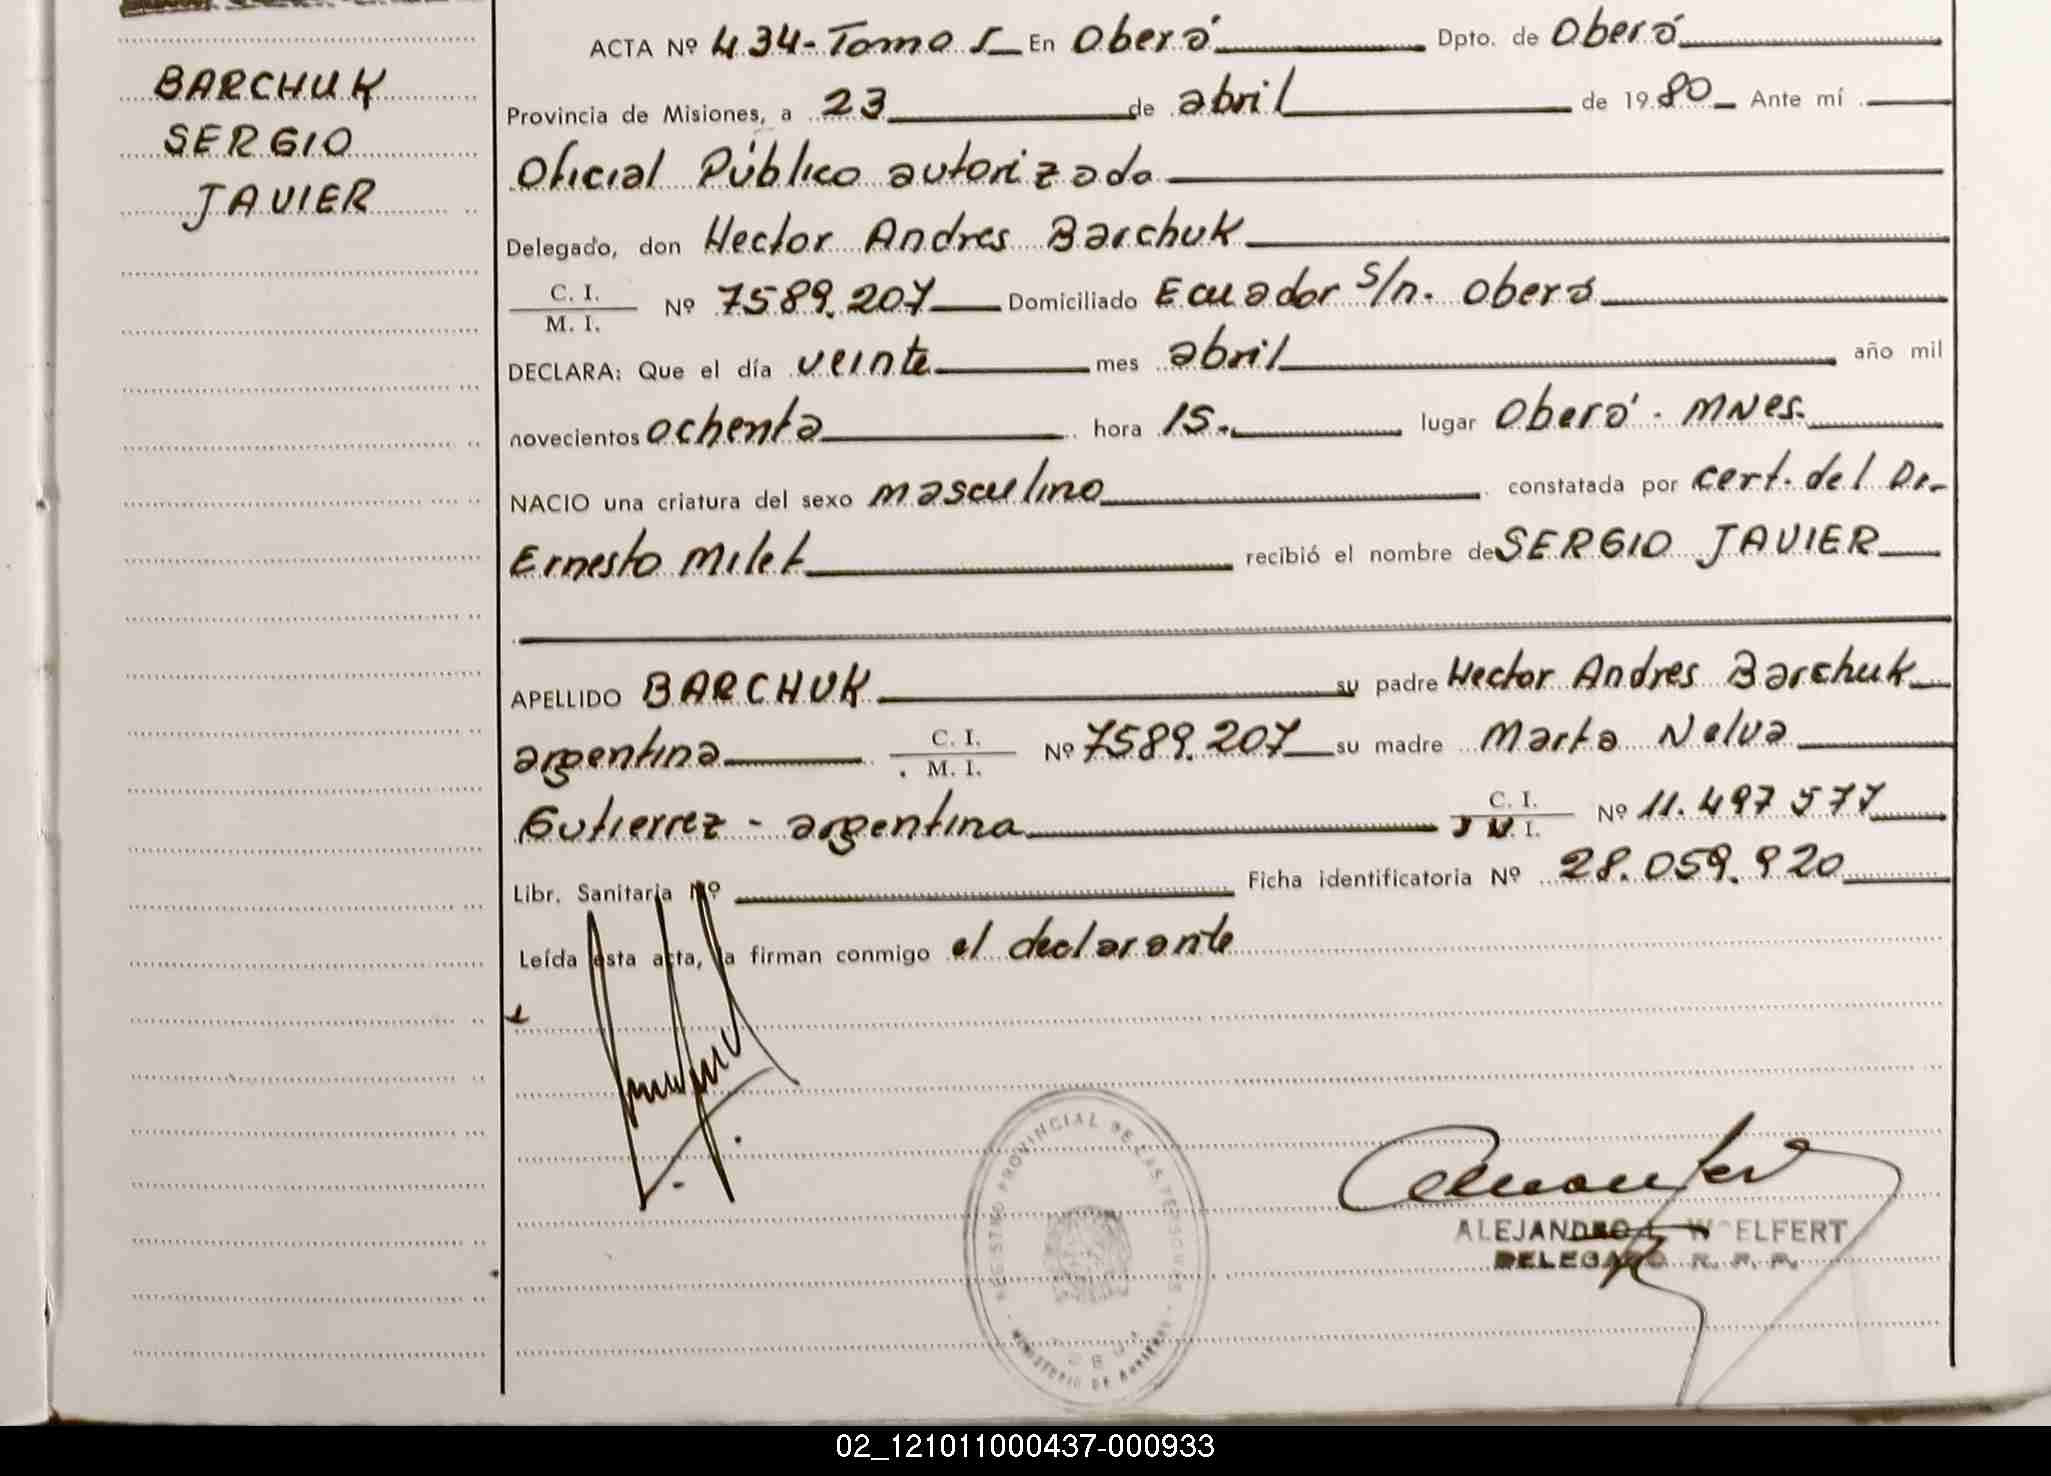 BARCHUK
SERGIO
JAVIER
ACTA Nº 434- Tomo I En Oberá Dpto. de Oberá
Provincia de Misiones, a 23 de abril de 1980 Ante mí
Oficial Público autorizado
Delegado, don Hector Andres Barchuk
C. I.
M. I. Nº 7589.207 Domiciliado Ecuador S/n. Oberá
DECLARA: Que el día veinte mes abril año mil
novecientos ochenta hora 15.- lugar Oberá - MNes.
NACIO una criatura del sexo masculino constatada por cert. del Dr.
Ernesto Milet recibió el nombre de SERGIO JAVIER
APELLIDO BARCHUK su padre Hector Andres Barchuk
argentina C. I.
M. I. Nº 7589.207 su madre Marta Nelva
Gutierrez - argentina C. I.
M. I. Nº 11.497 577
Libr. Sanitaria Nº Ficha identificatoria Nº 28.059.920
Leída esta acta, la firman conmigo el declarante
REGISTRO PROVINCIAL DE LAS PERSONAS
MINISTERIO DE
ALEJANDRO WOELFERT
DELEGADO R. P. P.
02_121011000437-000933